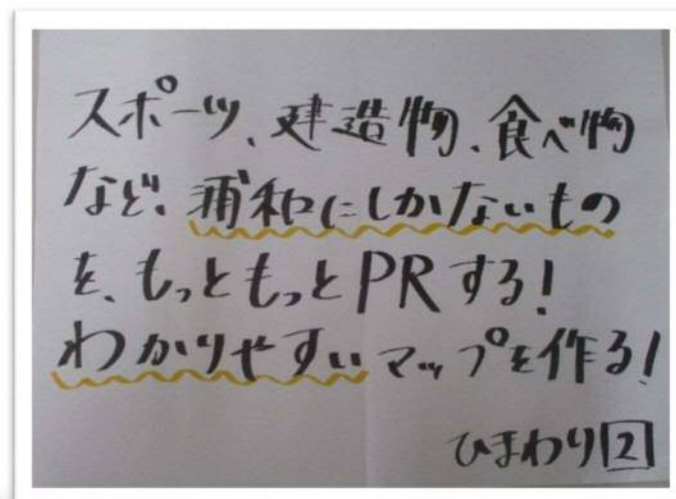 スポーツ、建造物、食べ物
など、浦和にしかないもの
を、もっともっとPRする!
わかりやすいマップを作る!
ひまわり2